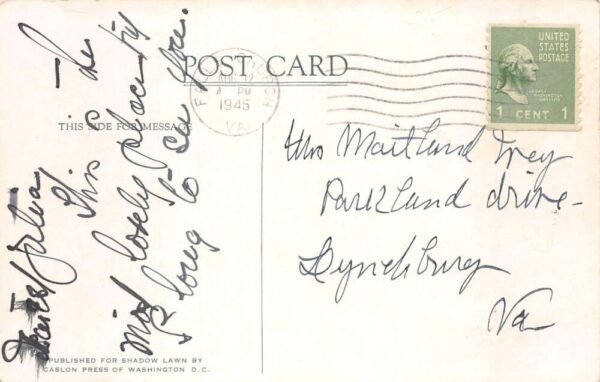 POST CARD
THIS SIDE FOR MESSAGE
This is the
most lovely place by
long to see you.
FALLS CHURCH
4 PM
1945
VA
UNITED
STATES
POSTAGE
GEORGE
WASHINGTON
1 CENT 1
Mrs Maitland
Parkland drive-
Lynchburg
Va
PUBLISHED FOR SHADOW LAWN BY
CASLON PRESS OF WASHINGTON D. C.